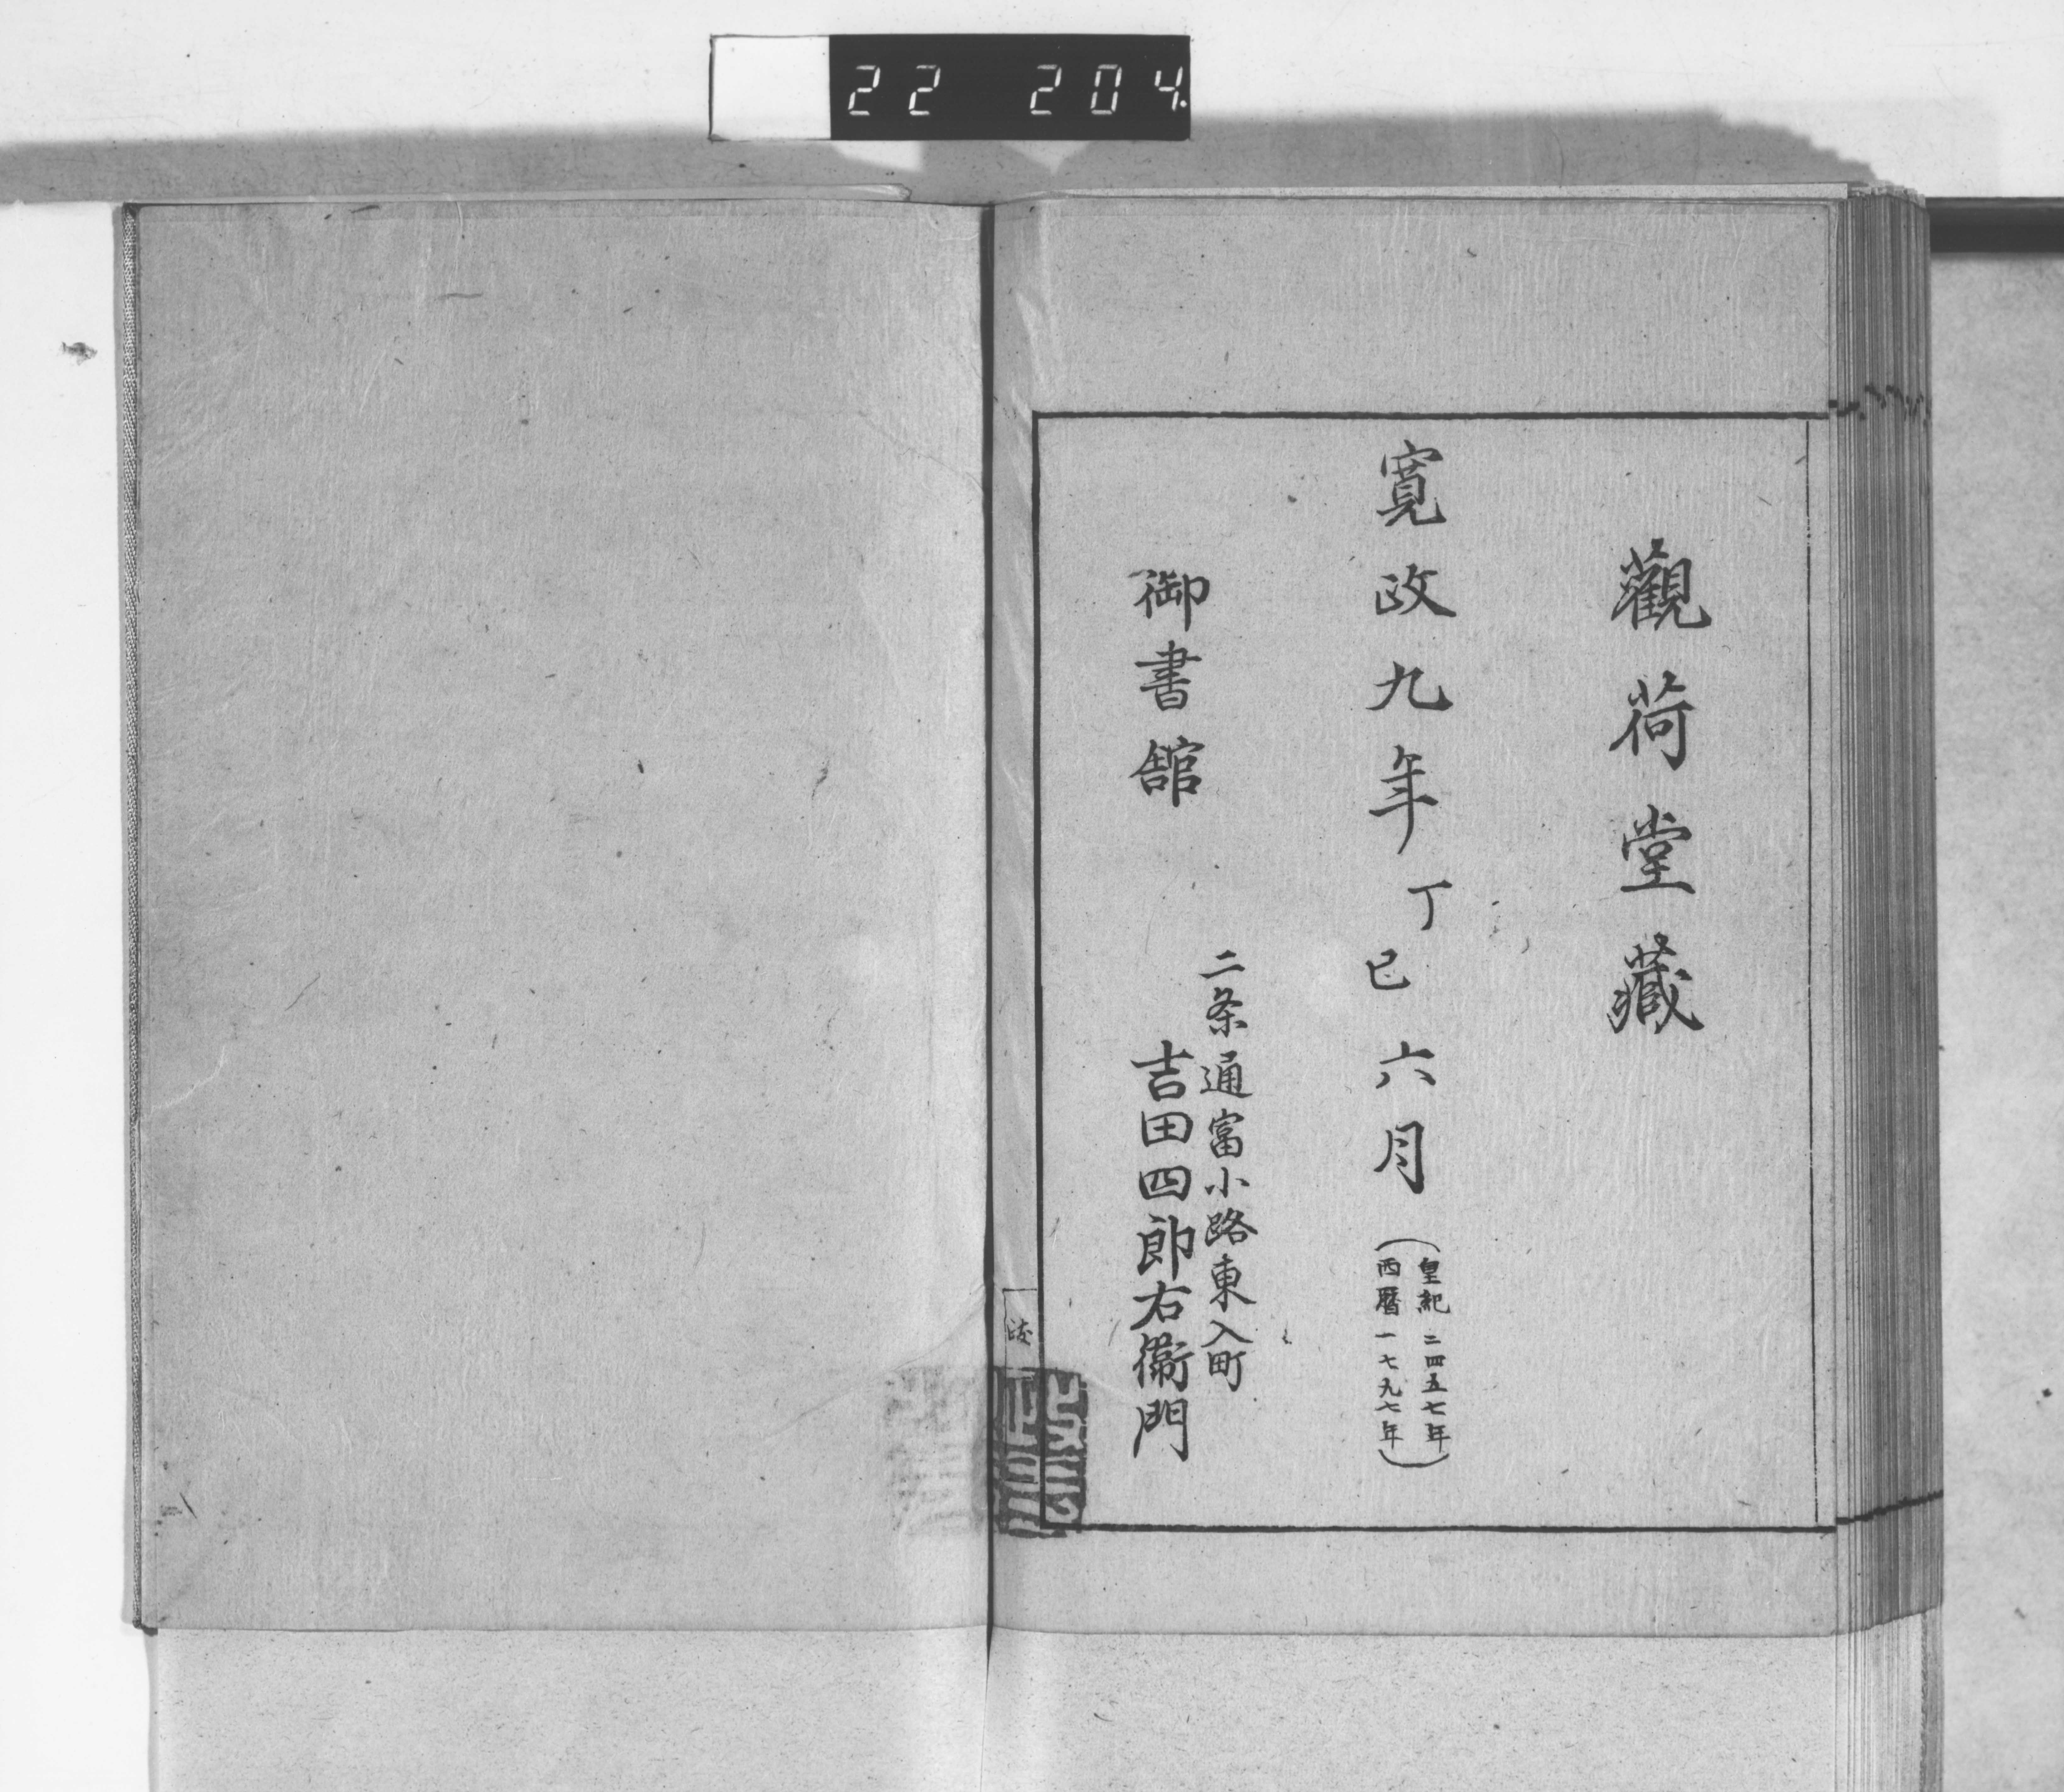 22 204.
觀荷堂藏
寬政九年丁巳六月
(皇紀二四五七年
西曆一七九七年)
御書舘
二条通富小路東入町
吉田四郎右衞門